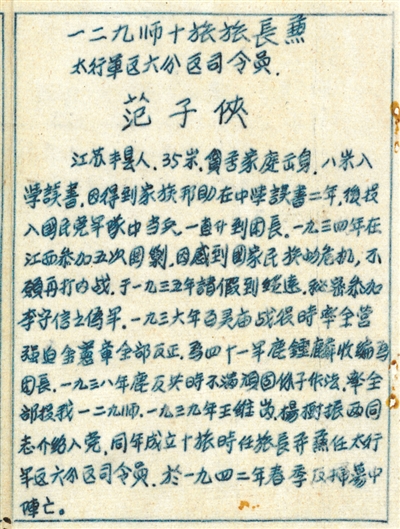 一二九师十旅旅長兼
太行軍区六分区司令員.
范子俠
江苏丰县人.35岁.貧苦家庭出身.八岁入
学读書.因得到家族邦助在中学读書二年.後投
入國民党軍隊中当兵.一直升到团長.一九三四年在
江西参加五次囲剿.因感到國家民族的危机,不
願再打内战.于一九三五年請假到绥遠.秘密参加
李子信之偽軍.一九三六年百灵庙战役時率全营
强迫金憲章全部反正.為四十一軍鹿鍾麟收编為
团長.一九三八年鹿反共時不满頑固份子作法,率全
部投我一二九师.一九三九年王维崗.楊樹振两同
志介绍入党.同年成立十旅時任旅長并兼任太行
軍区六分区司令員.於一九四二年春季反掃蕩中
陣亡.